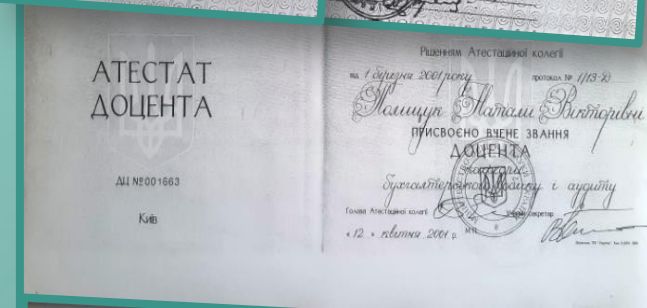 АТЕСТАТ
ДОЦЕНТА
ДЦ №001663
Київ
Рішенням Атестаційної колегії
від 1 березня 2001 року протокол № 1/13-Д
Поліщук Наталії Вікторівні
ПРИСВОЄНО ВЧЕНЕ ЗВАННЯ
ДОЦЕНТА
кафедри
бухгалтерського обліку і аудиту
Голова Атестаційної колегії
Учений секретар
М.П.
« 12 » квітня 2001 р.